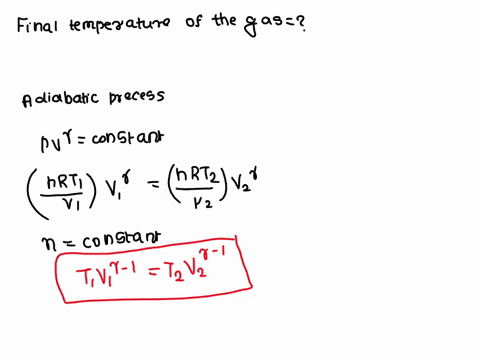 Final temperature of the gas=?
Adiabatic precess
PV^γ = constant
(nRT₁/V₁) V₁^γ = (nRT₂/V₂) V₂^γ
n = constant
T₁V₁^γ-1 = T₂V₂^γ-1